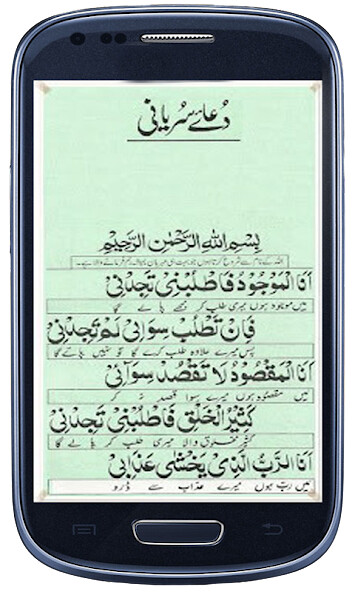 دُعائے سُریانی
بِسْمِ اللهِ الرَّحْمٰنِ الرَّحِيْمِ
اللہ کے نام سے شروع کرتا ہوں جو بہت ہی مہربان
اَنَا الْمَوْجُوْدُ فَاطْلُبْنِيْ تَجِدْنِيْ
میں موجود ہوں میری طلب کر مجھے پا لے گا
فَاِنْ تَطْلُبْ سِوَائِيْ لَمْ تَجِدْنِيْ
پس میرے علاوہ طلب کرے گا تو نہیں پائے گا
اَنَا الْمَقْصُوْدُ لَا تَقْصُدْ سِوَائِيْ
میں مقصود ہوں میرے سوا قصد نہ کر
كَثِيْرُ الْخَلْقِ فَاطْلُبْنِيْ تَجِدْنِيْ
کثیر مخلوق والا میری طلب کر پا لے گا
اَنَا الرَّبُّ الَّذِيْ يَخْشٰى عَذَابِيْ
میں ربّ ہوں میرے عذاب سے ڈرو